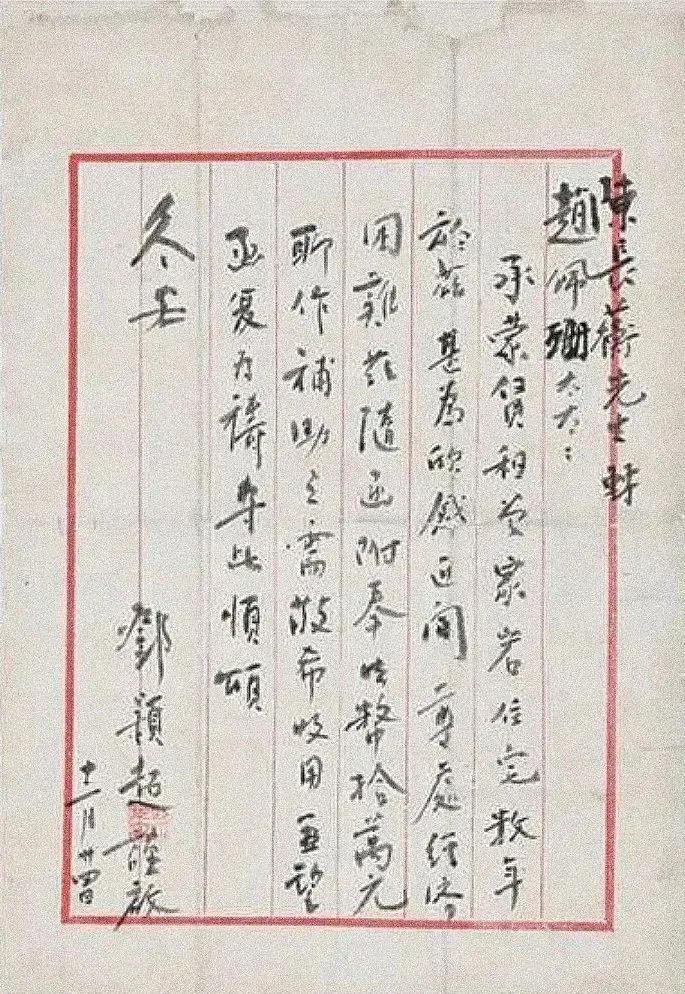 陳長蘅先生
趙佩珊太太：
承蒙賃租曾家岩住宅数年
於茲甚為欣感近聞尊處經濟
困難茲隨函附奉法幣拾萬元
聊作補助之需敬希收用並望
函复为禱專此順頌
冬安
鄧穎超謹啟
十一月廿四日